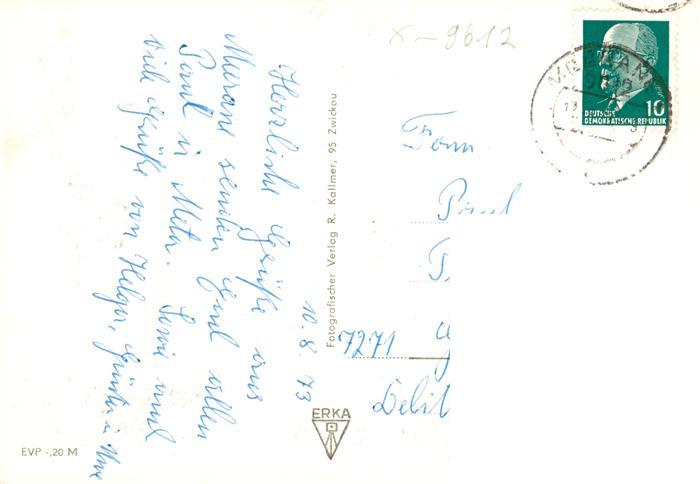 x-9612
10. 8. 73
Herzliche Grüße aus
Meerane senden Euch allen
Paul u. Meta. Sowie auch
viele Grüße von Helga, Günter u. Uwe
EVP -,20 M
Fotografischer Verlag R. Kallmer, 95 Zwickau
ERKA
DEUTSCHE
DEMOKRATISCHE REPUBLIK
10
MEERANE
Fam.
Paul
7271
Delit